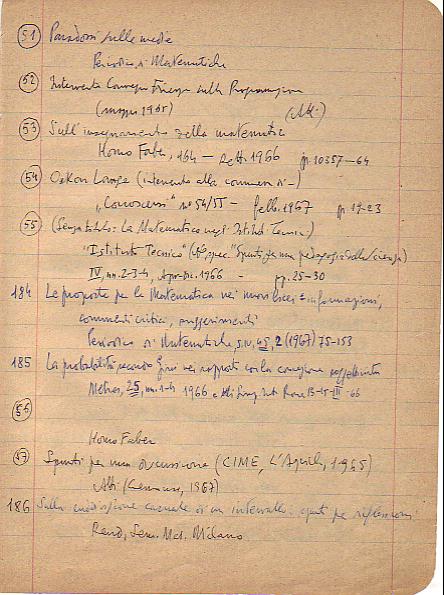 51 Paradossi sulle medie
Periodico di Matematiche
52 Intervento Convegno sulla Programmazione
(maggio 1965) (Atti)
53 Sull'insegnamento della matematica
Homo Faber, 164 — Sett. 1966 pp. 10357—64
54 Oskar Lange (intervento alla commemoraz.)
"Conoscersi" nº 54/55 — febb. 1967 pp. 19-23
55 (Senza titolo: La Matematica negli Istituti Tecnici)
"Istituto Tecnico" (Nº spec. "Spunti per una pedagogia della scienza")
IV, nn. 2-3-4, Apr-Dic. 1966 — pp. 25-30
184 Le proposte per la Matematica nei nuovi licei: informazioni,
commenti critici, suggerimenti
Periodico di Matematiche, s. IV, 45, 2 (1967) 75-153
185 La probabilità secondo Gini nei rapporti con la concezione soggettivista
Metron, 25, nn. 1-4 1966 e Atti Roma
56
Homo Faber
57 Spunti per una discussione (CIME, L'Aquila, 1965)
Atti (Cremonese, 1967)
186 Sulla suddivisione casuale di un intervallo: spunti per riflessioni
Rend. Sem. Mat. Milano